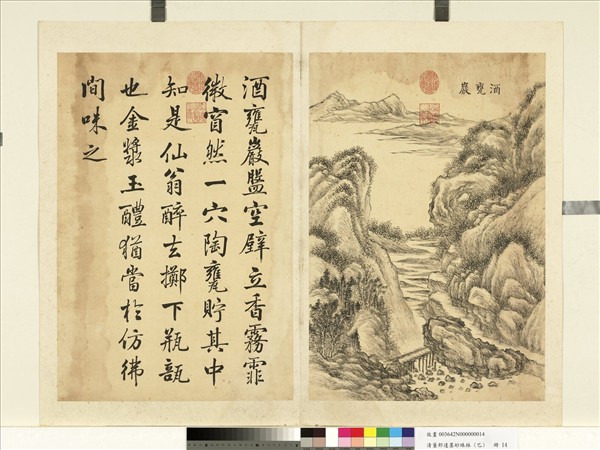 酒甕巖
酒甕巖盤空壁立香霧霏
微窅然一穴陶甕貯其中
知是仙翁醉去擲下瓶瓿
也金漿玉醴猶當於仿彿
間味之
故畫 003642N000000014
清董邦達墨妙珠林（巳） 冊 14